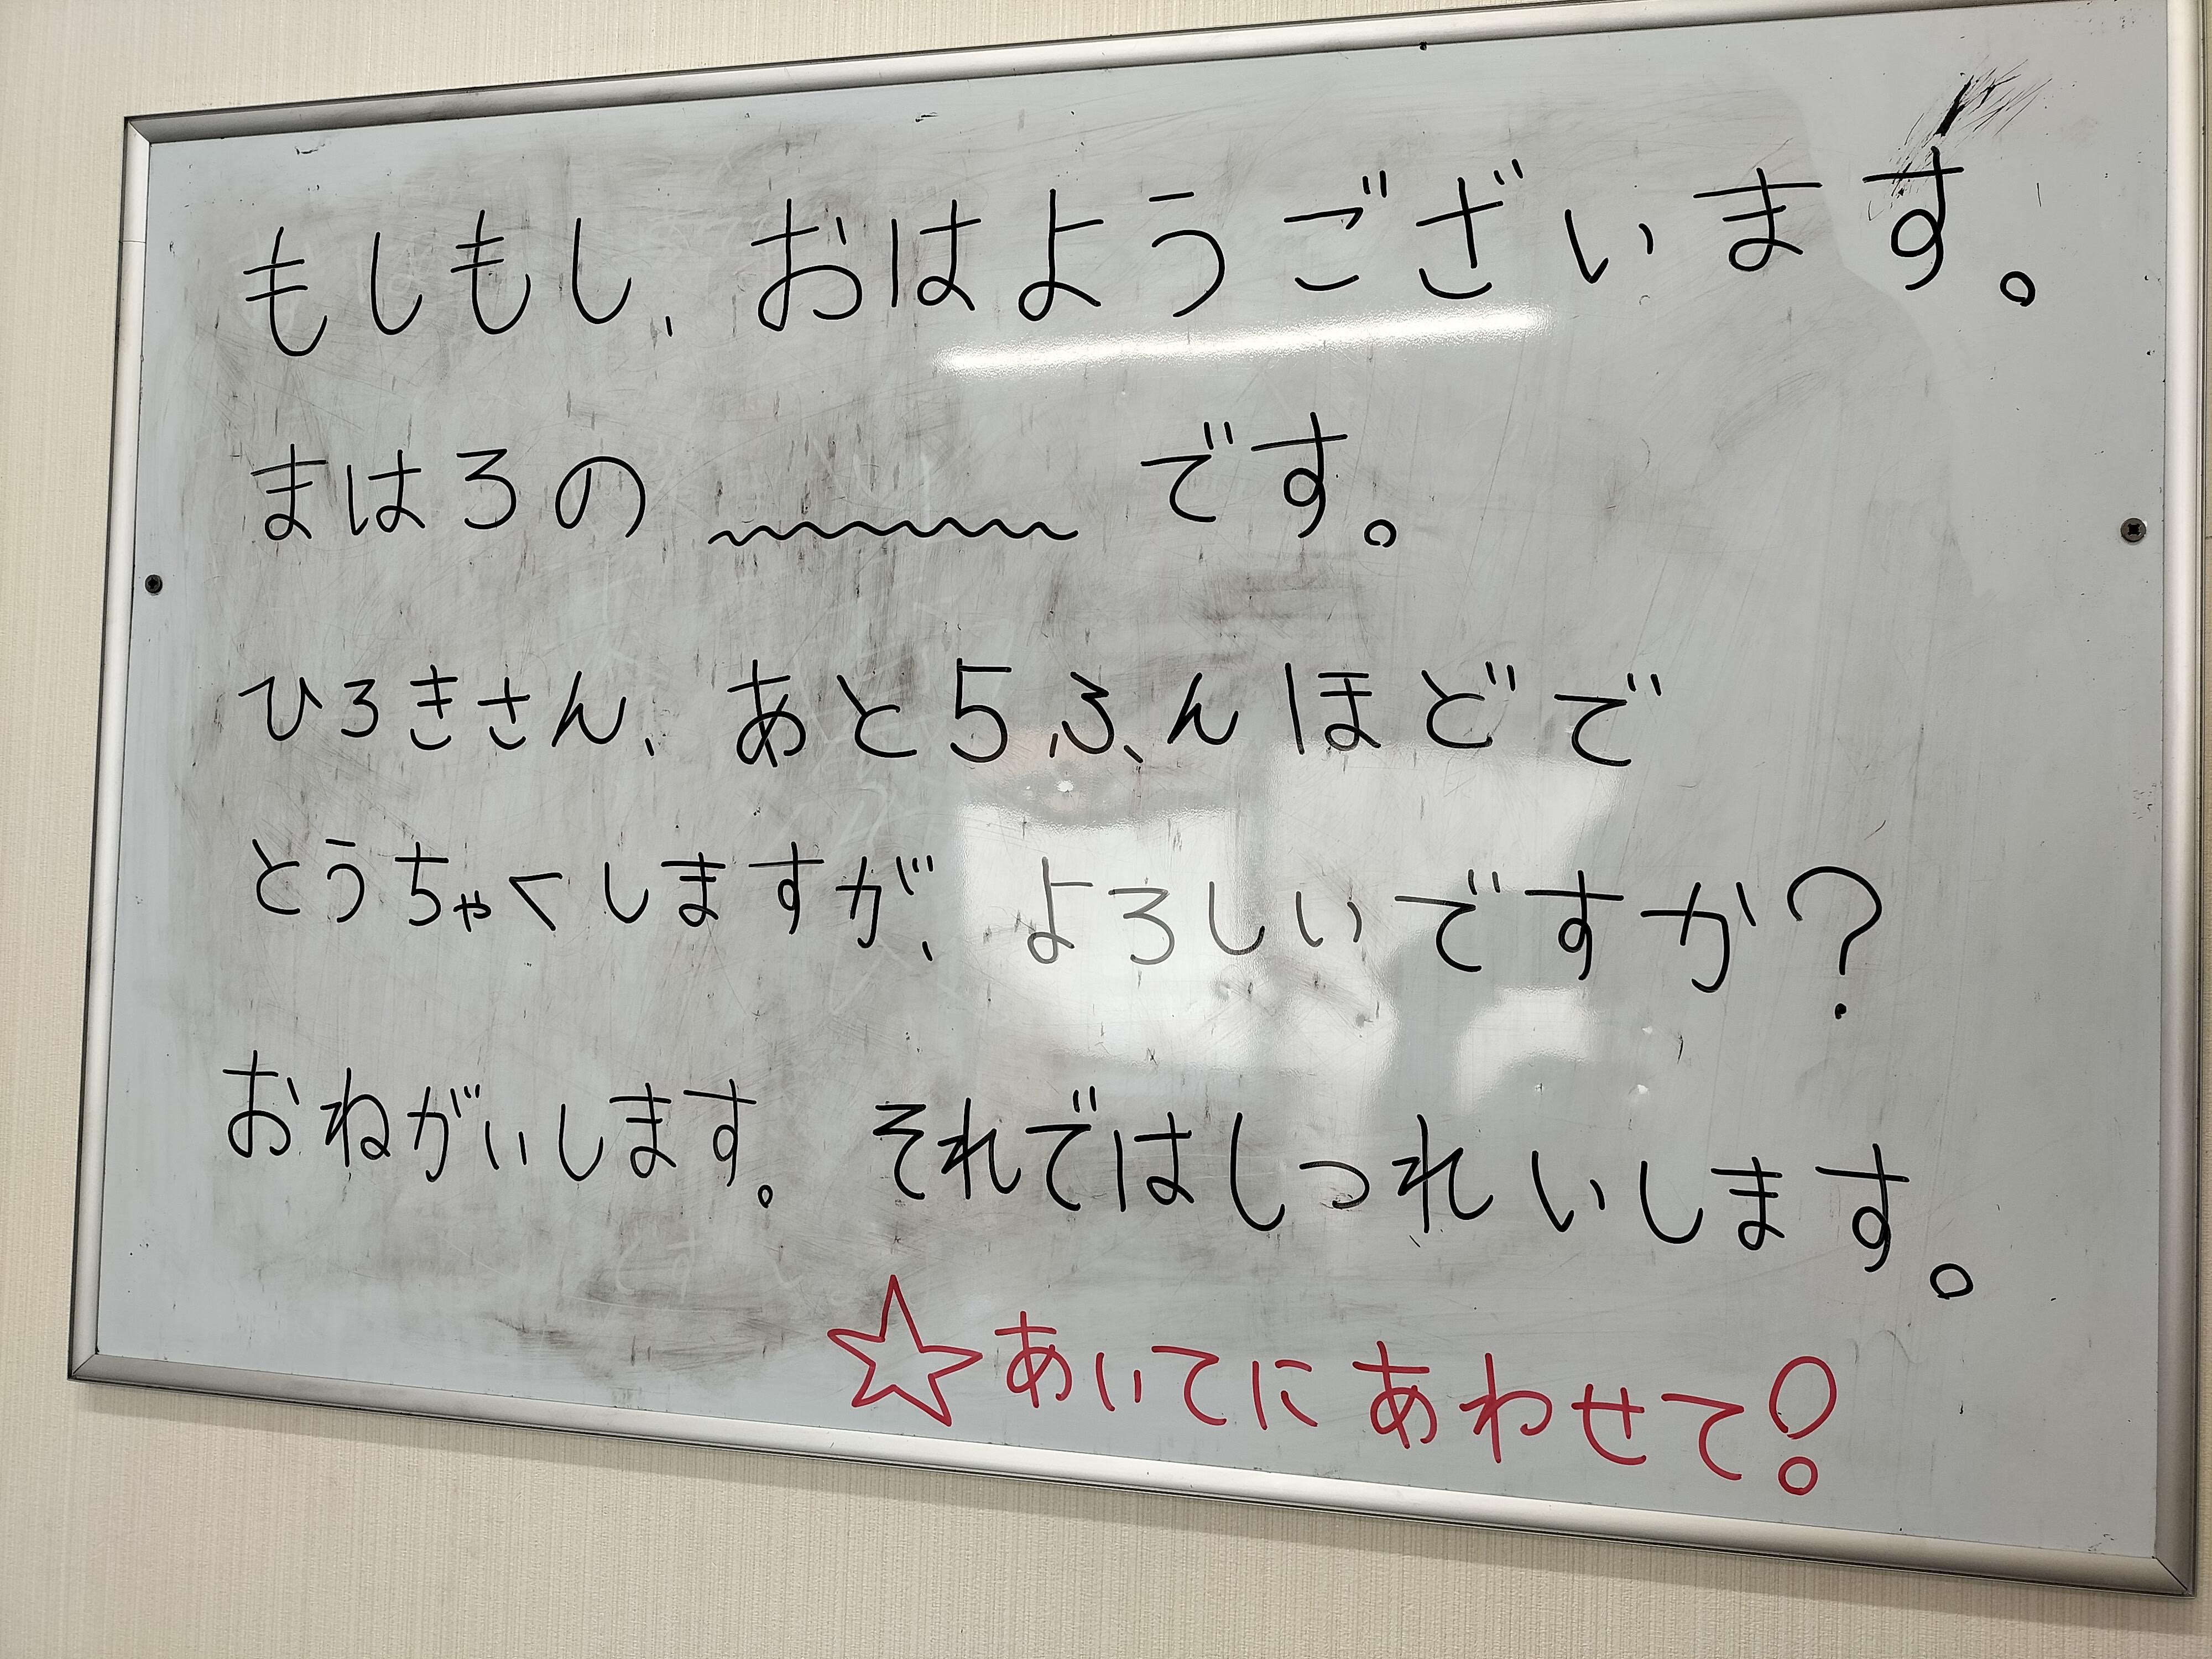 もしもし、おはようございます。
まはろの 〜〜〜〜〜 です。
ひろきさん、あと5ふんほどで
とうちゃくしますが、よろしいですか?
おねがいします。それではしつれいします。
☆あいてにあわせて!